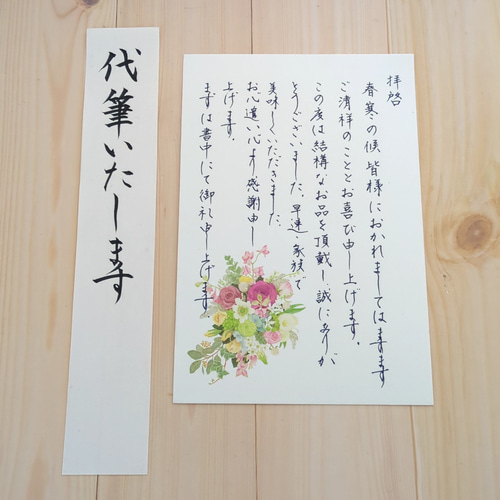 拝啓
春寒の候 皆様におかれましては ますます
ご清祥のこととお喜び申し上げます。
この度は結構なお品を頂戴し、誠にありが
とうございました。早速、家族で
美味しくいただきました。
お心遣い心より感謝申し
上げます。
まずは書中にて御礼申し上げます。
代筆いたします